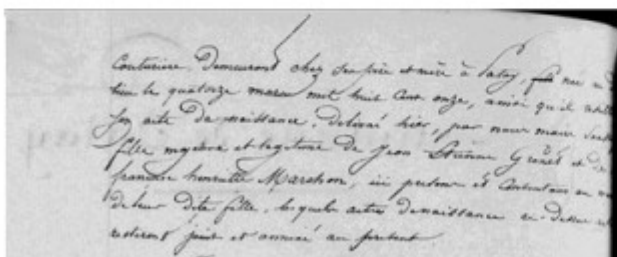 Couturiere, Demeurant chez ses père et mère à Patay, née au d
lieu le quatorze mars mil huit cent onze, ainsi qu'il resulte
son acte de naissance, delivré hier, par nous maire
fille majeure et legitime de Jean Etienne Grenet et de
francoise henriette Marchon, ici presens et Consentans au
de leur dite fille, lesquels actes de naissance ci-dessus
resteront joint et annexé au present